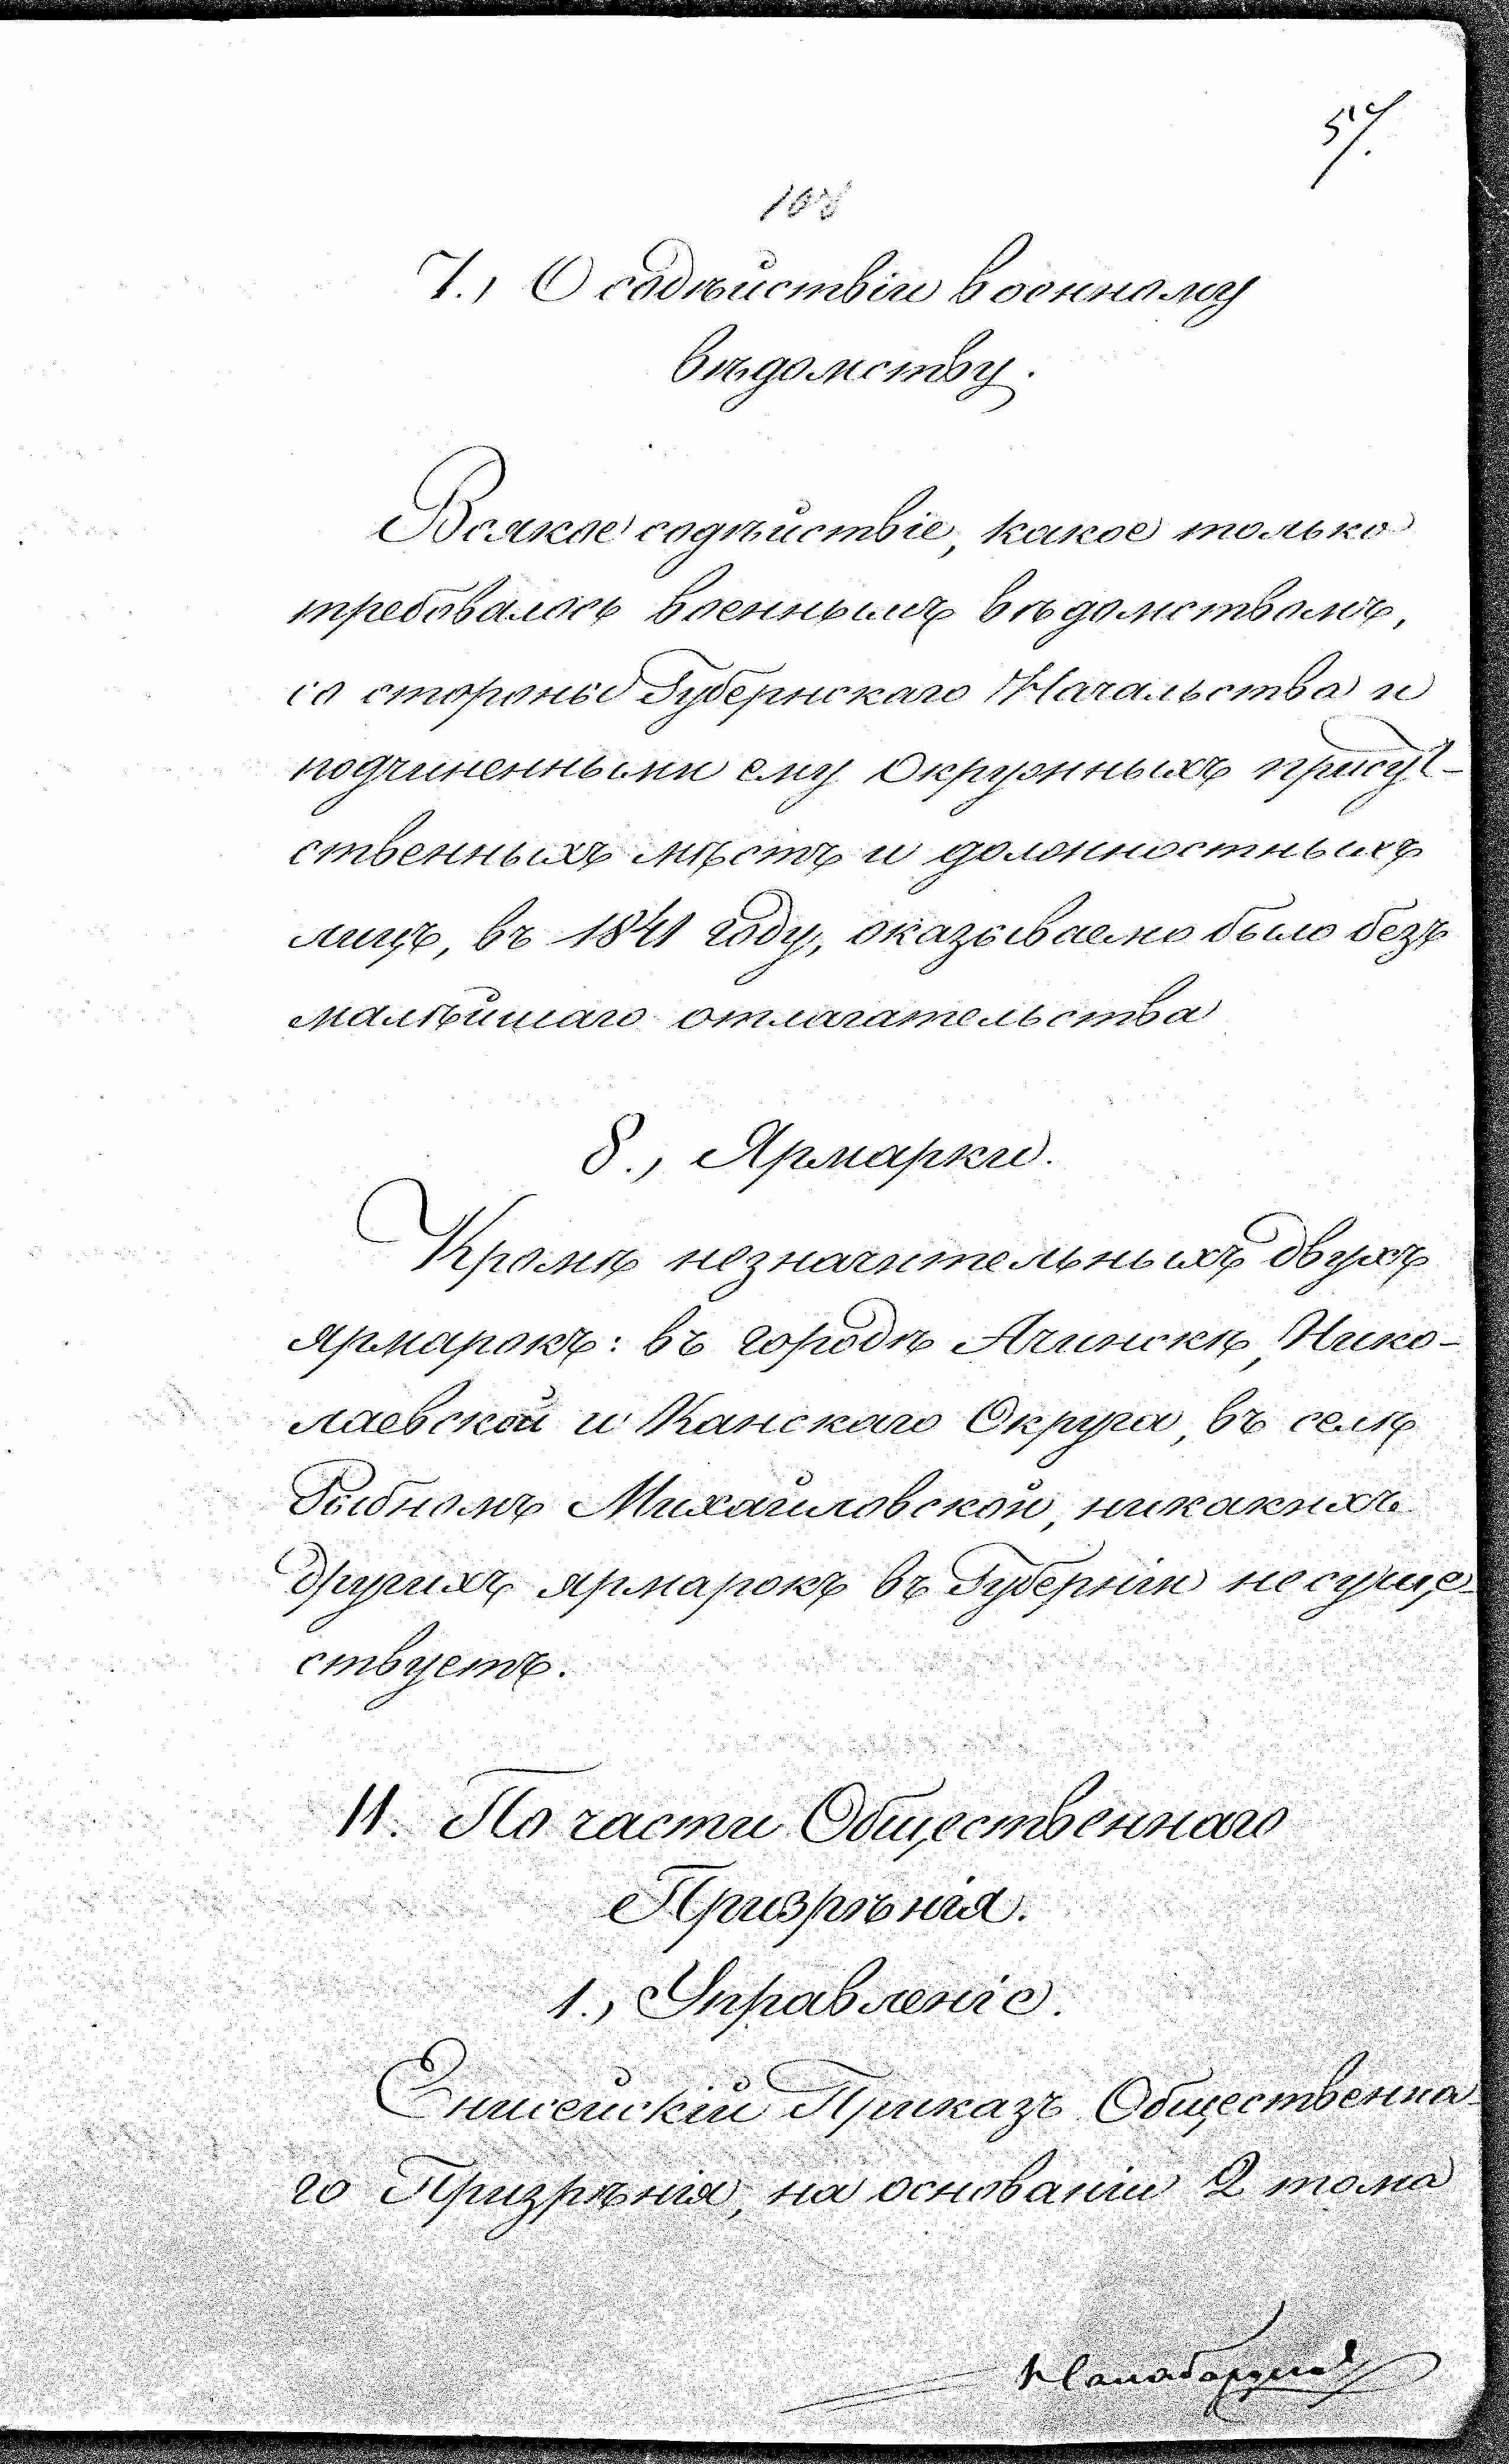 57.
7., О содѣйствіи военному
вѣдомству.
Всякое содѣйствіе, какое только
требовалось военнымъ вѣдомствомъ,
со стороны Губернскаго Начальства и
подчиненными ему Окружныхъ присут-
ственныхъ мѣстъ и должностныхъ
лицъ, въ 1841 году, оказываемо было безъ
малѣйшаго отлагательства
8., Ярмарки.
Кромѣ незначительныхъ двухъ
ярмарокъ: въ городѣ Ачинскѣ, Нико-
лаевской и Канскаго Округа, въ селѣ
Рыбномъ Михайловской, никакихъ
другихъ ярмарокъ въ Губерніи несуще-
ствуетъ.
II. По части Общественнаго
Призрѣнія.
1., Управленіе.
Енисейскій Приказъ Общественна-
го Призрѣнія, на основаніи 2 тома